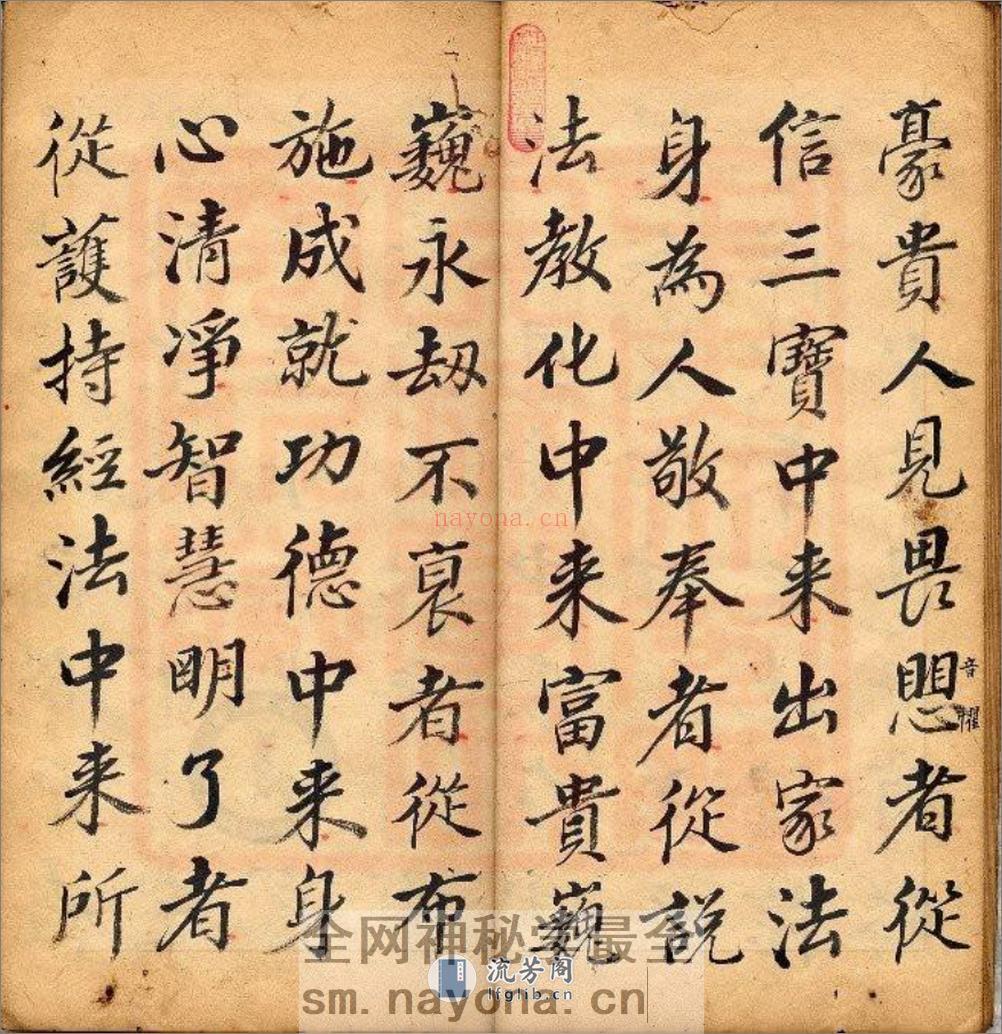 豪貴人見畏愳者從
音懼
信三寶中来出家法
身為人敬奉者從説
法教化中来富貴巍
巍永劫不衰者從布
施成就功德中来身
心清凈智慧明了者
從護持經法中来所
nayona.cn
全网神秘学最全
流芳阁
lfglib.cn
sm.nayona.cn